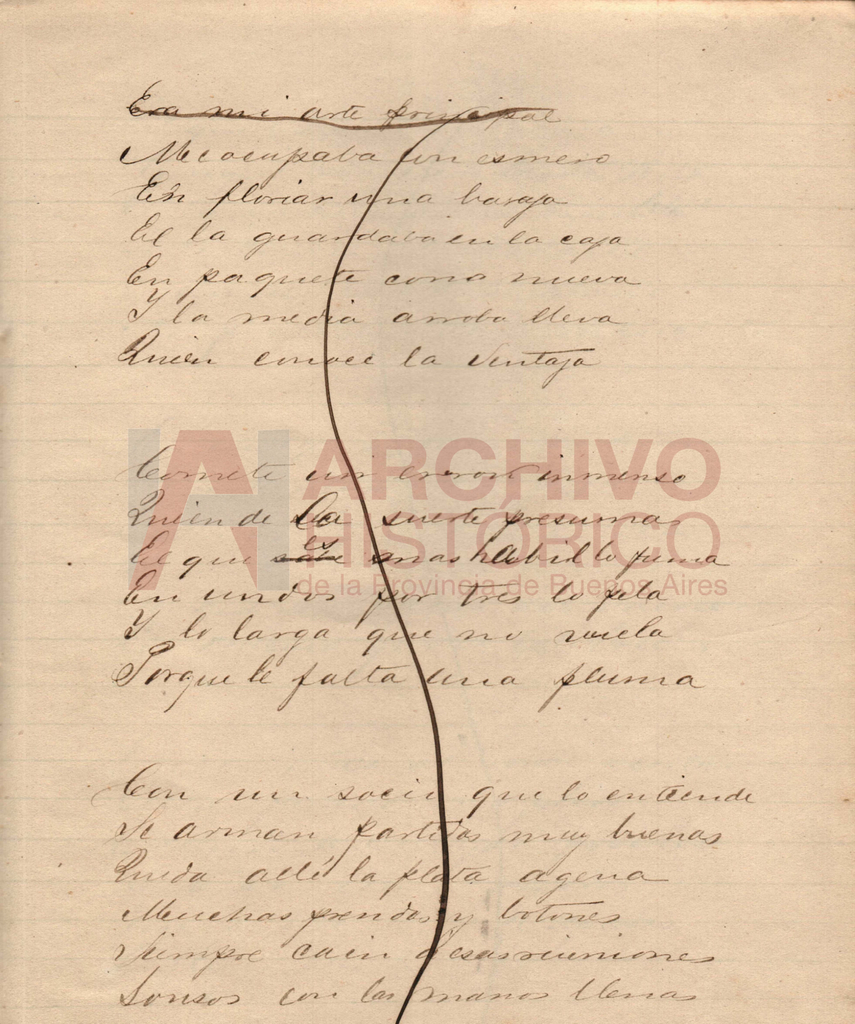 Era mi arte principal
Me ocupaba con esmero
En floriar una baraja
El la guardaba en la caja
En paquete como nueva
Y la media arroba lleva
Quien conoce la ventaja
Comete un error inmenso
Quien de la suerte presuma
El que es mas habil lo fuma
En un dos por tres lo pela
Y lo larga que no vuela
Porque le falta una pluma
Con un socio que lo entiende
Se arman partidas muy buenas
Queda alli la plata agena
Muchas prendas y botones
Siempre cain a esas riuniones
Sonsos con las manos llenas
ARCHIVO
HISTÓRICO
de la Provincia de Buenos Aires